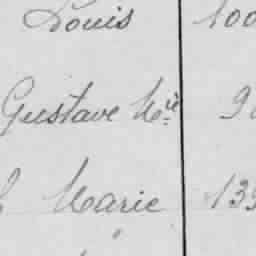 Louis 100
Gustave Mie 9
Marie 139